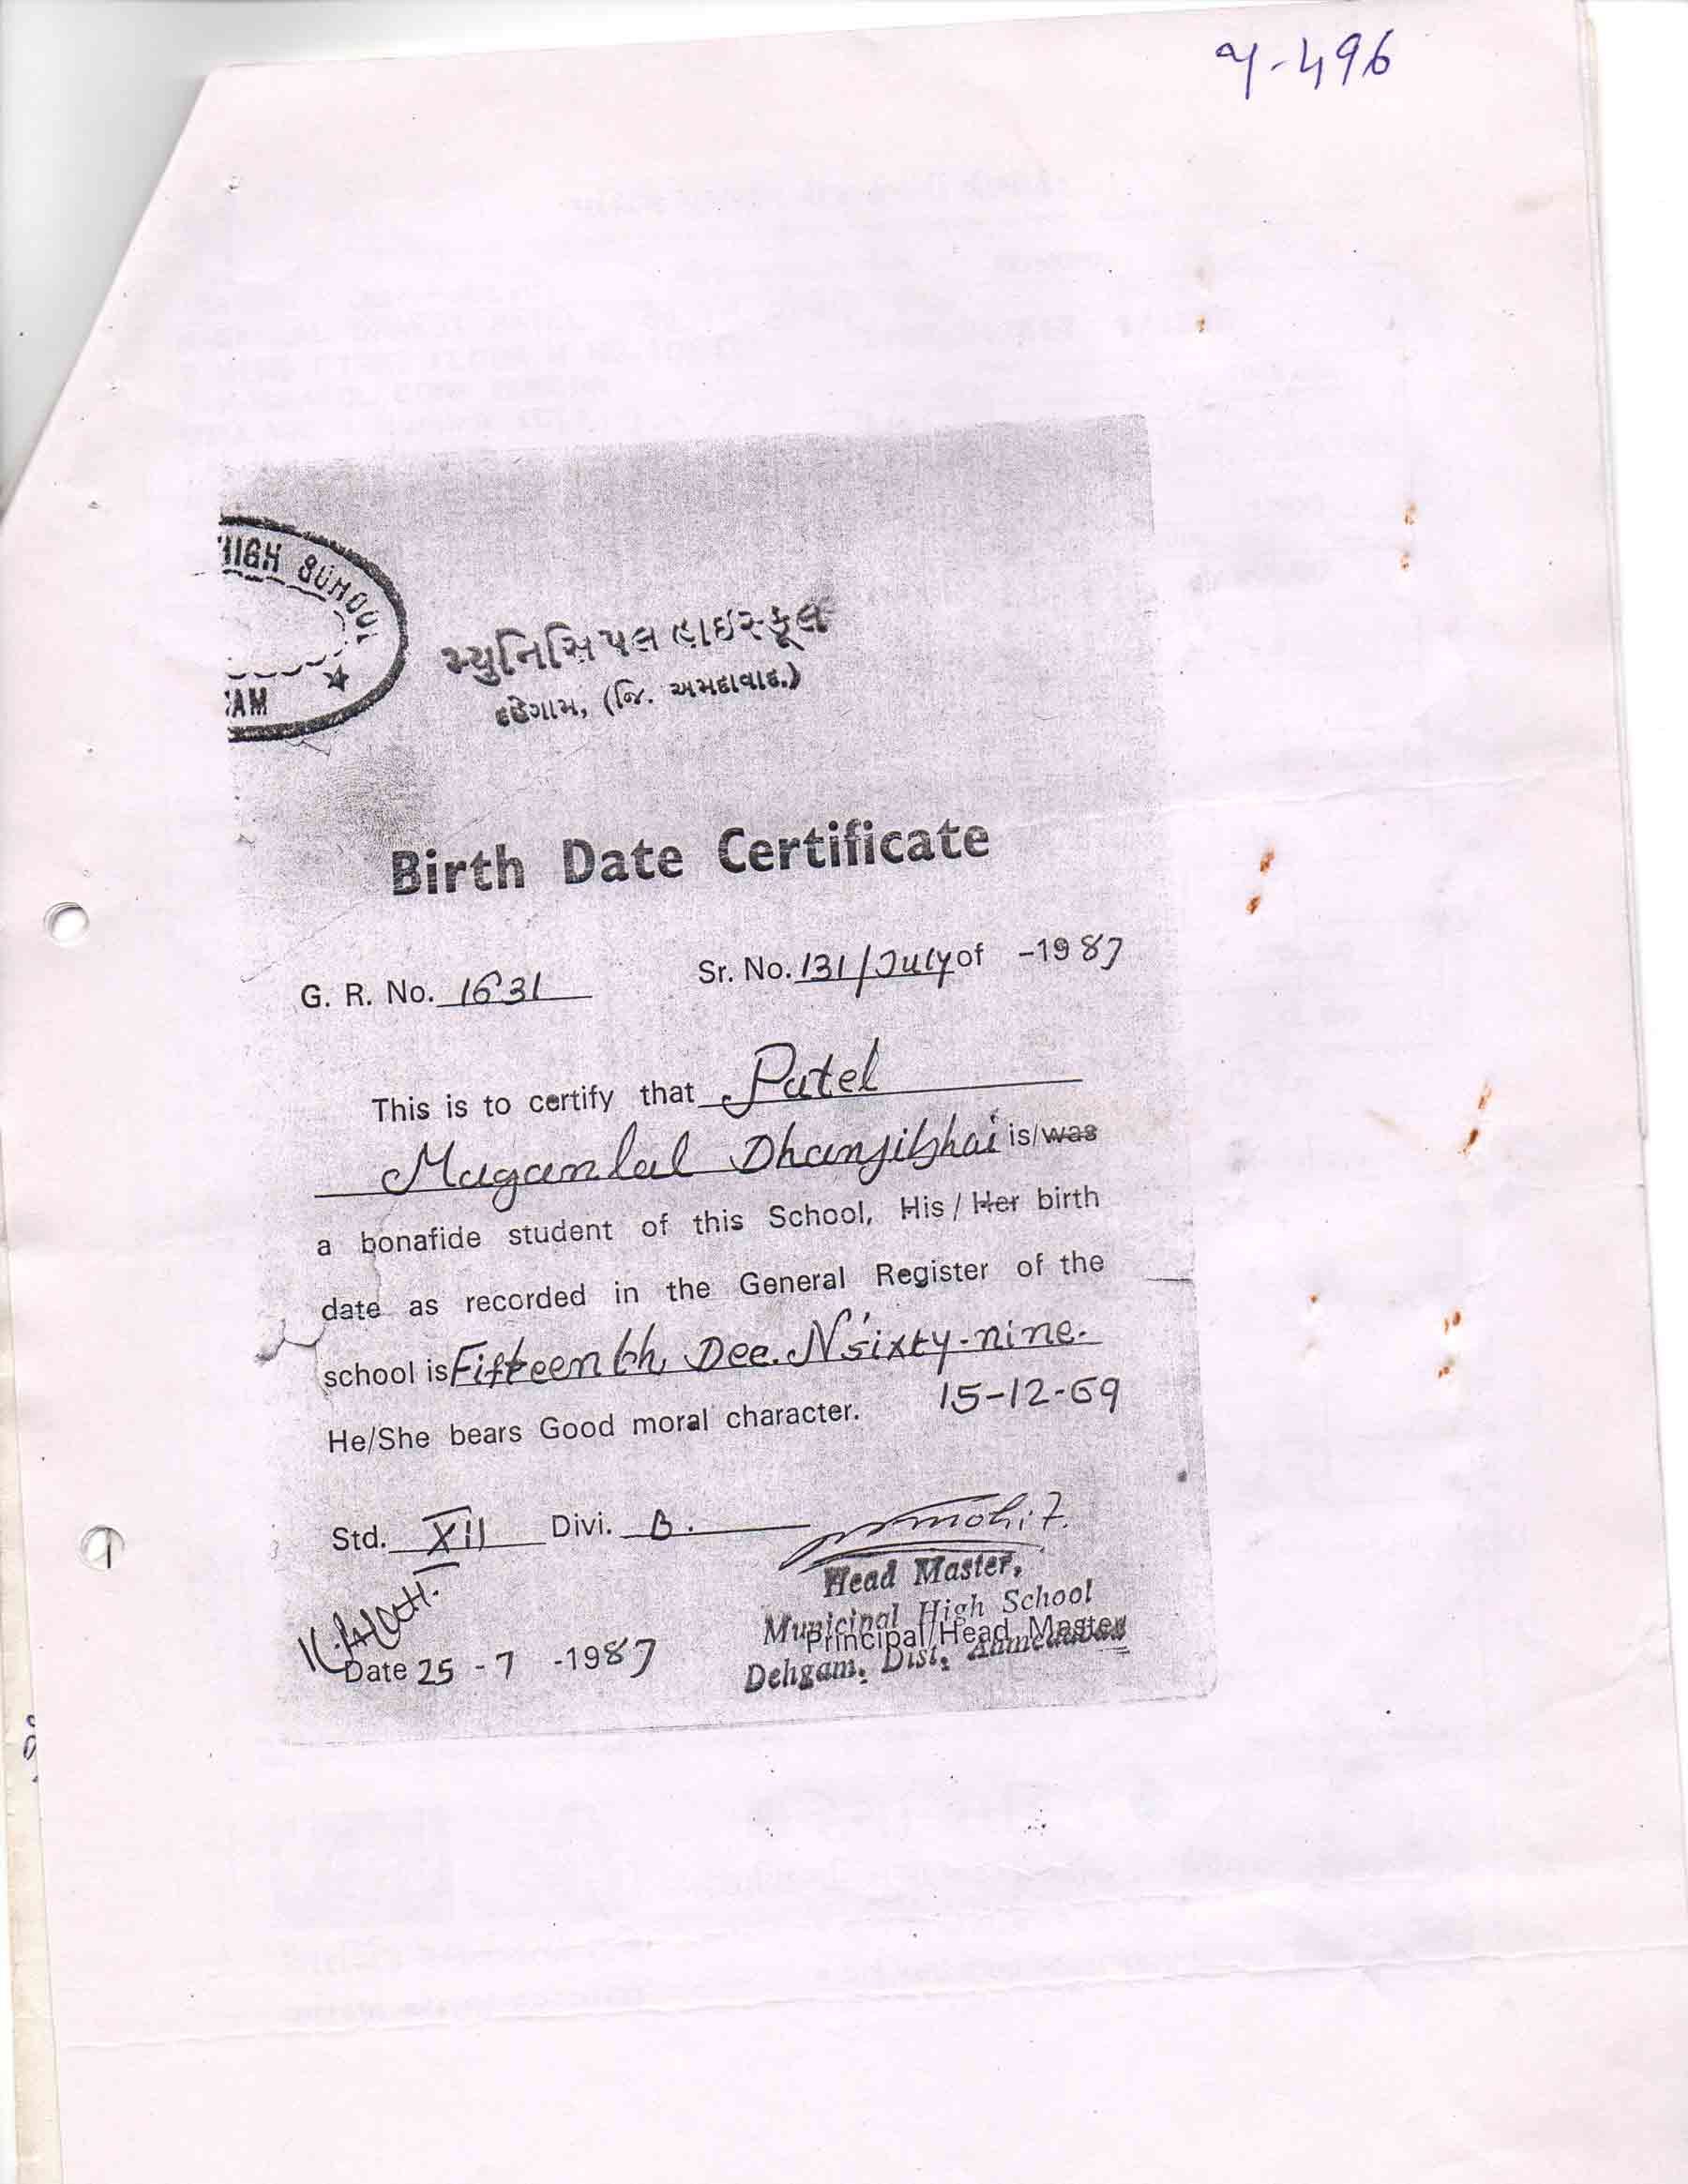 પ-496
HIGH SCHOOL
મ્યુનિસિપલ હાઇસ્કૂલ
દહેગામ, (જિ. અમદાવાદ.)
Birth Date Certificate
G. R. No. 1631 Sr. No. 131/July of -1987
This is to certify that Patel
Maganlal Dhanjibhai is/was
a bonafide student of this School, His / Her birth
date as recorded in the General Register of the
school is Fifteenth, Dec. N'sixty-nine.
He/She bears Good moral character. 15-12-69
Std. XII Divi. B.
Head Master,
Municipal High School
Principal/Head Master
Dehgam, Dist, Ahmedabad
Date 25 - 7 -1987